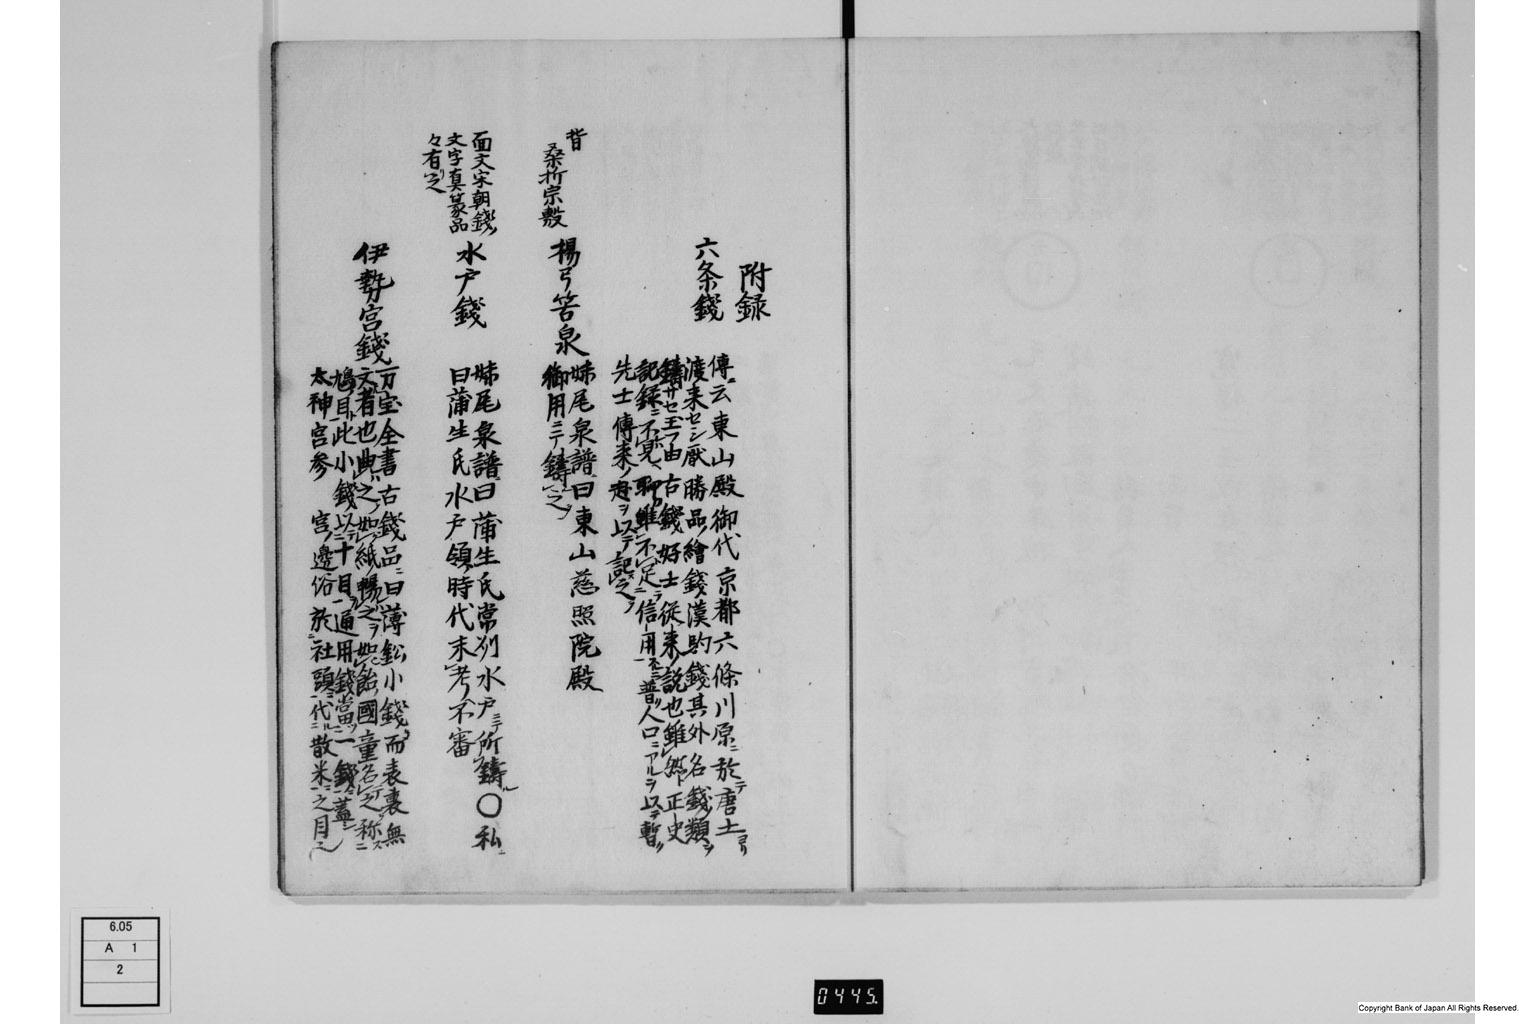 附録
六条錢
傳ニ云東山殿御代京都六條川原ニ於テ唐土ヨリ
渡来セシ厭勝品繪錢漢
錢其外名錢ノ類ヲ
鑄サセ玉フ由古錢好士従来ノ説也雖然ト正史
記録ニ不見聊雖不足ニ信用一普ク人口ニアルヲ以テ暫ク
先士傳来ノ
ヲ以テ記之ヲ
背
桑折宗敷
楊弓笞泉
妹尾泉譜曰東山慈照院殿
御用ニテ鑄之ヲ
面文宋朝錢ノ
文字真篆品
々有リ之
水户錢
妹尾泉譜曰蒲生氏常刕水户ニテ所鑄ル〇私ニ
曰蒲生氏水户領ノ時代未考不審
伊勢宮錢
万宝全書古錢品ニ曰薄鈆小錢而表裏無
文者也典之ヲ如紙ノ暢之ヲ如飴國童名之ヲ称ス
鳩目ト此小錢以十目一通用錢當ツ一錢ニ蓋シ
太神宮参
宮ノ邊俗於社頭ニ代ル散米ニ之目
6.05
A 1
2
0445.
Copyright Bank of Japan All Rights Reserved.